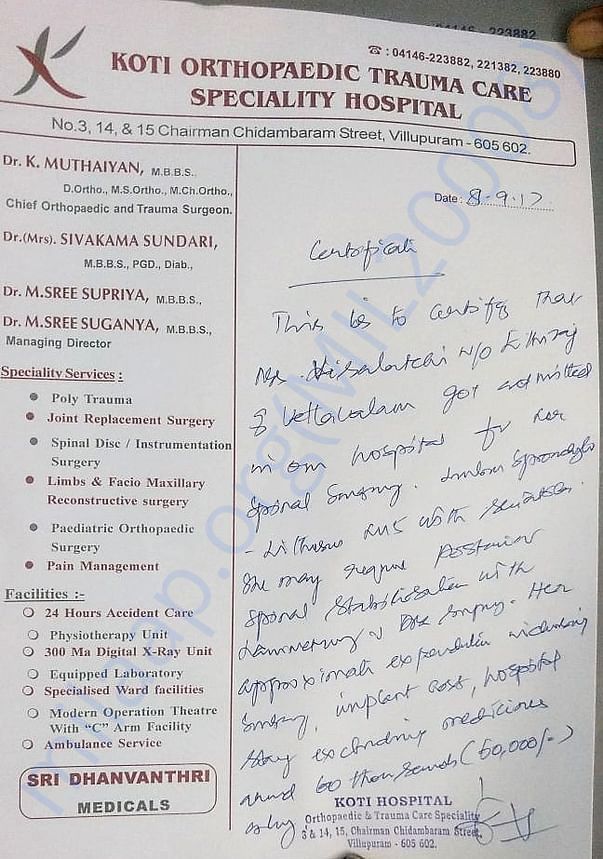 04146 - 223882
☎ : 04146-223882, 221382, 223880
KOTI ORTHOPAEDIC TRAUMA CARE
SPECIALITY HOSPITAL
No.3, 14, & 15 Chairman Chidambaram Street, Villupuram - 605 602.
Dr. K. MUTHAIYAN, M.B.B.S.
D.Ortho., M.S.Ortho., M.Ch.Ortho.,
Chief Orthopaedic and Trauma Surgeon.
Dr.(Mrs). SIVAKAMA SUNDARI,
M.B.B.S., PGD., Diab.,
Dr. M.SREE SUPRIYA, M.B.B.S.,
Dr. M.SREE SUGANYA, M.B.B.S.,
Managing Director
Speciality Services :
Poly Trauma
Joint Replacement Surgery
Spinal Disc / Instrumentation
Surgery
Limbs & Facio Maxillary
Reconstructive surgery
Paediatric Orthopaedic
Surgery
Pain Management
Facilities :-
24 Hours Accident Care
Physiotherapy Unit
300 Ma Digital X-Ray Unit
Equipped Laboratory
Specialised Ward facilities
Modern Operation Theatre
With "C" Arm Facility
Ambulance Service
SRI DHANVANTHRI
MEDICALS
Date : 8-9-17
Certificate
This is to certify that
w/o
of Vettavalam got admitted
in our hospital for her
Spinal Surgery. Lumbar Spondylo
- Listhesis with Sciatica.
She may require Posterior
Spinal Stabilisation with
Laminectomy & Disc Surgery. Her
approximate expenditure including
Surgery, implant cost, hospital
stay excluding medicines
around 60 thousands (60,000/-)
only
KOTI HOSPITAL
Orthopaedic & Trauma Care Speciality
3 & 14, 15, Chairman Chidambaram Street,
Villupuram - 605 602.
milaap.org(MIL120008)